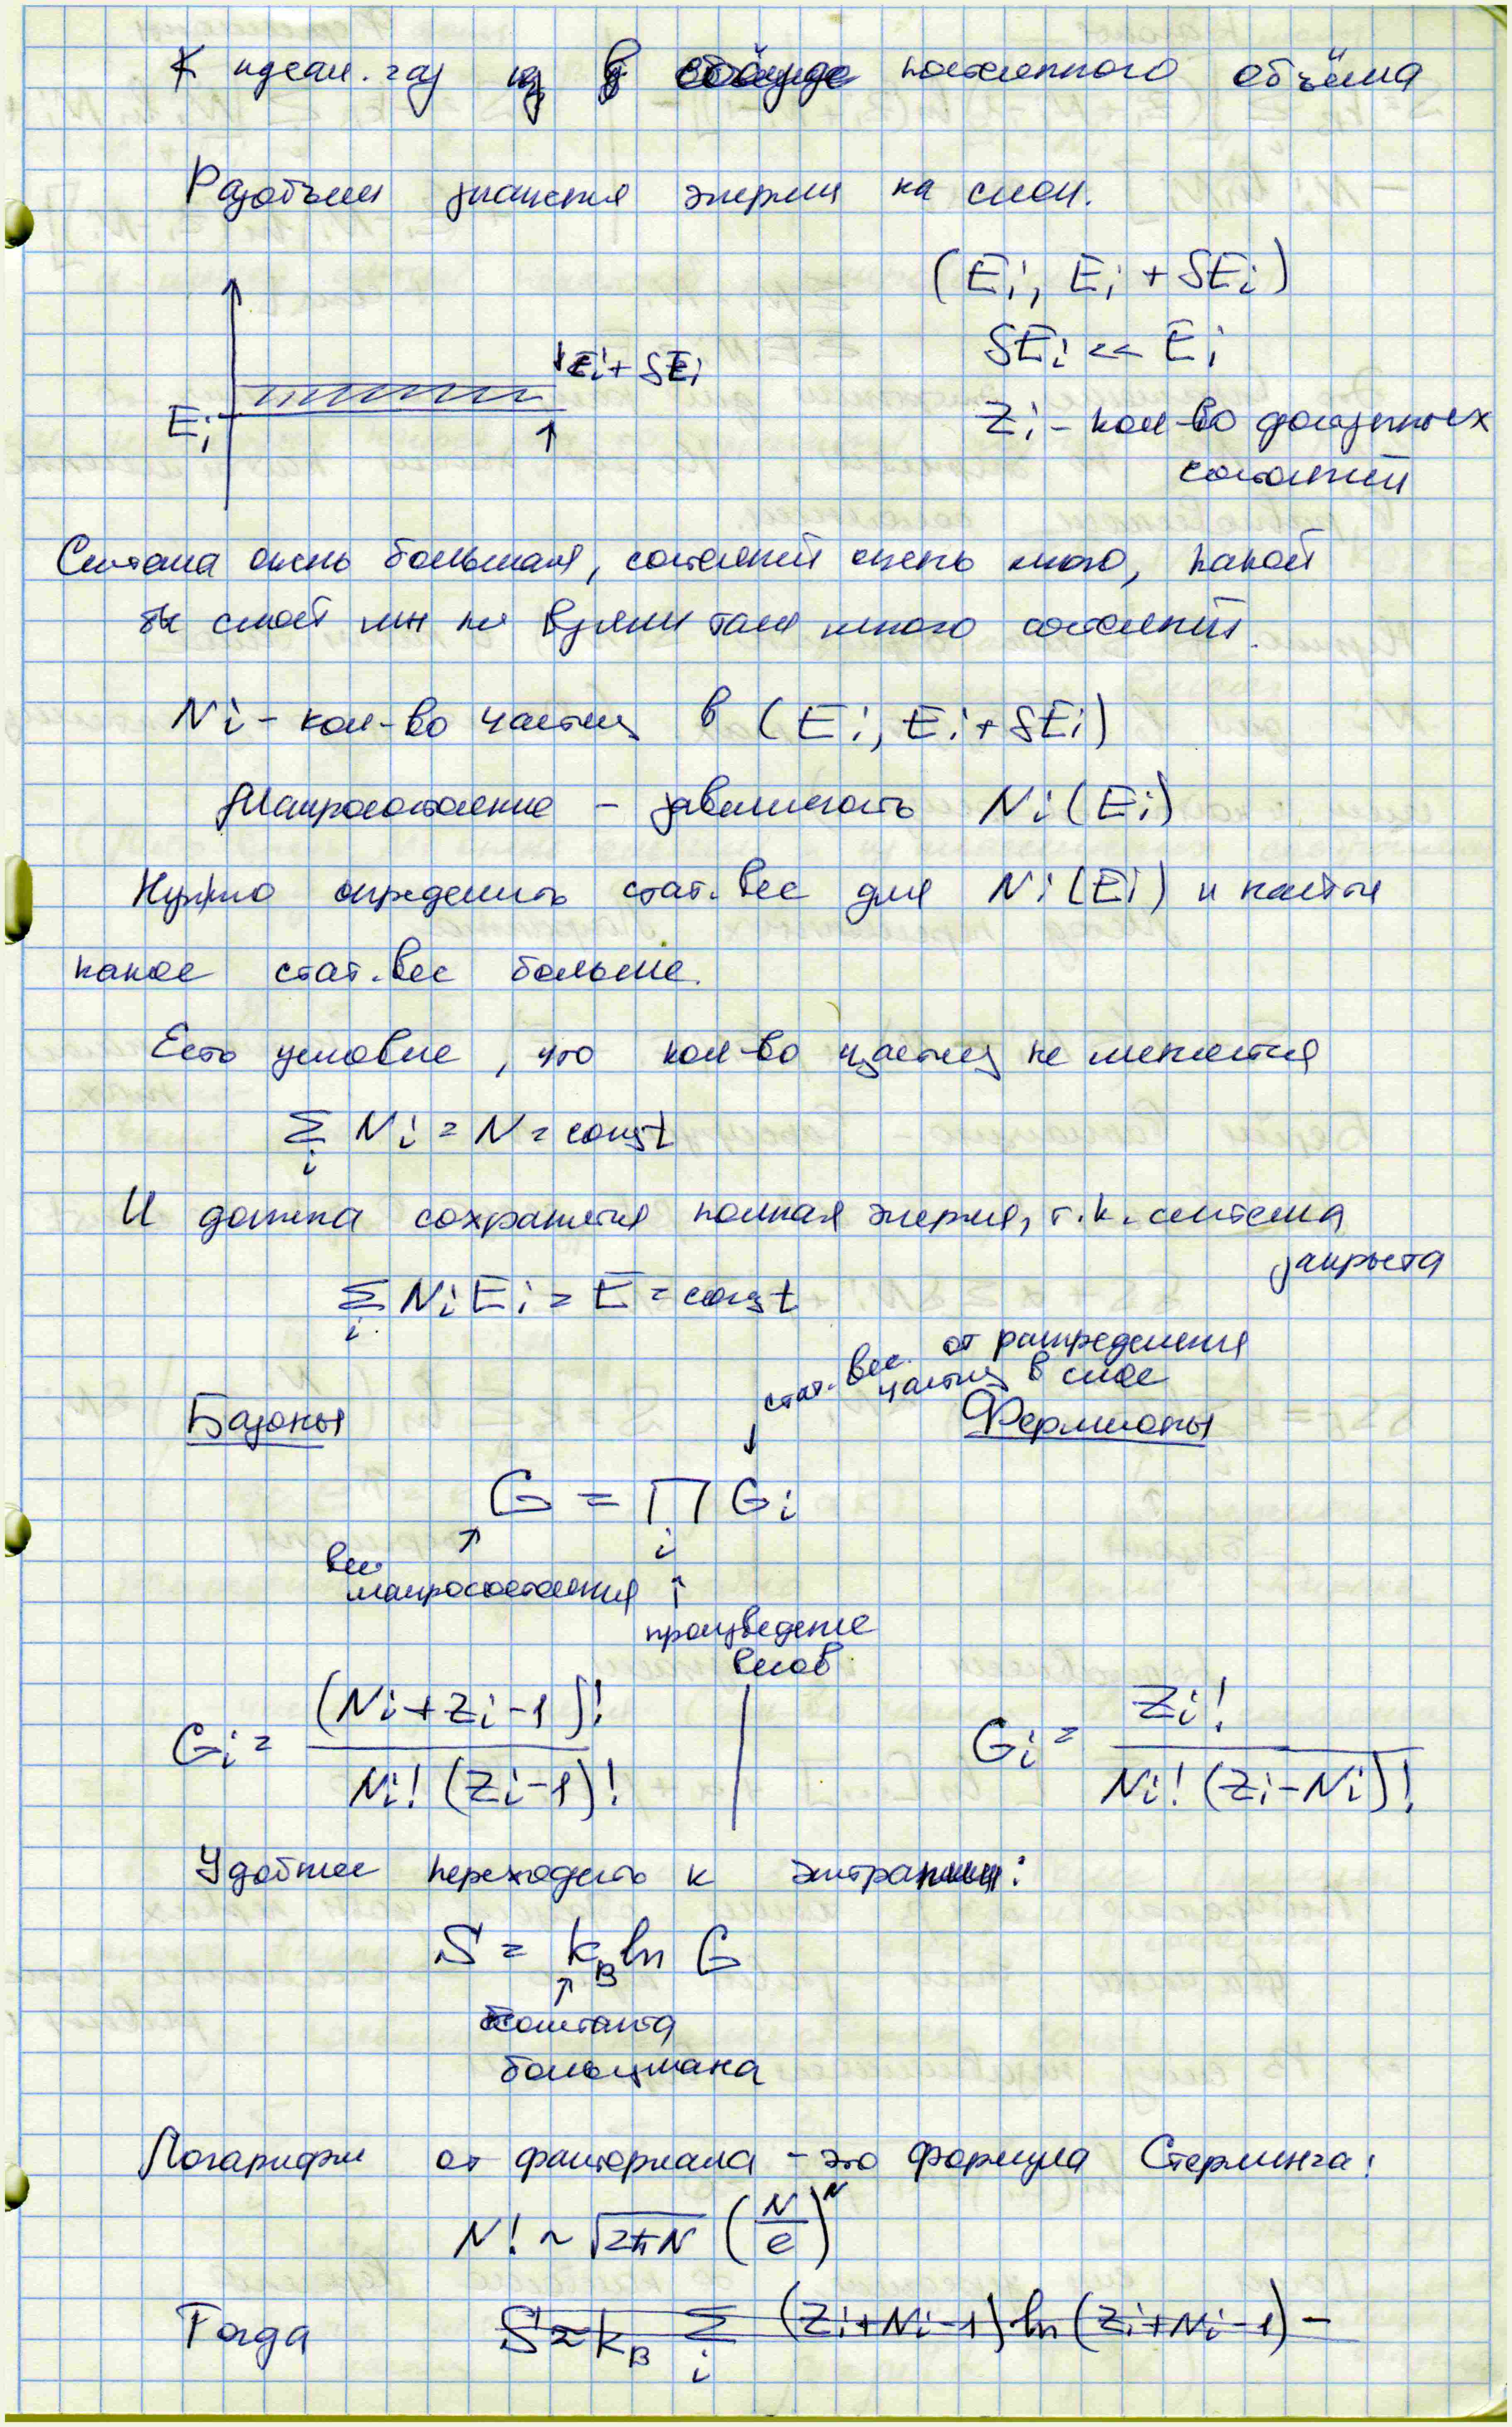 К идеал. газ из в постоянного объёма
Разобъем значения энергии на слои.
(Ei, Ei + δEi)
δEi << Ei
Ei + δEi
Ei
Zi - кол-во доступных
состояний
Система очень большая, состояний очень много, какой
бы слой мы не взяли там много состояний.
Ni - кол-во частиц в (Ei, Ei + δEi)
Макросостояние - зависимость Ni(Ei)
Нужно определить стат. вес для Ni(Ei) и найти
какое стат. вес больше.
Есть условие, что кол-во частиц не меняется
∑i Ni = N = const
И должна сохранятся полная энергия, т.к. система
закрыта
∑i Ni Ei = E = const
стат. вес от распределения
частиц в слое
Базоны
Фермионы
G = ∏i Gi
вес
макросостояния
произведение
весов
Gi = (Ni + Zi - 1)! / Ni! (Zi - 1)!
Gi = Zi! / Ni! (Zi - Ni)!
Удобнее переходить к энтропии:
S = kB ln G
константа
больцмана
Логарифм от факториала - это формула Стерлинга:
N! ~ √2πN (N/e)^N
Тогда S ≈ kB ∑i (Zi + Ni - 1) ln (Zi + Ni - 1) -